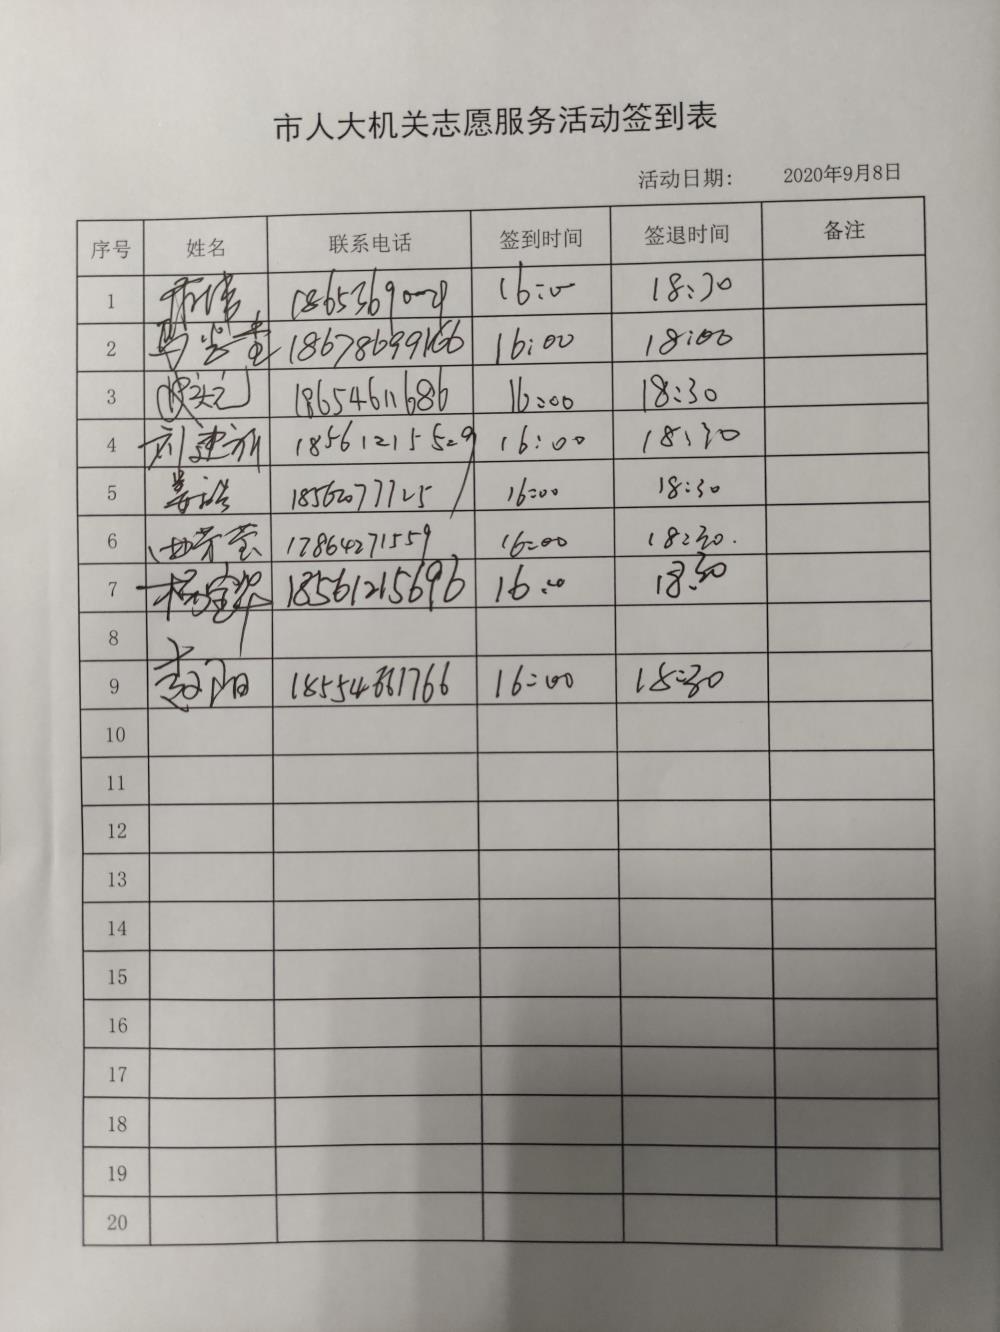 市人大机关志愿服务活动签到表
活动日期: 2020年9月8日
序号 姓名 联系电话 签到时间 签退时间 备注
1 18:30
2 马 18678699166 16:00 18:00
3 18654611686 16:00 18:30
4 刘建新 18561215529 16:00 18:30
5 姜浩 18562077725 16:00 18:30
6 17864271559 16:00 18:30.
7 杨宝华 18561215696 16:00 18:30
8
9 赵阳 16:00 18:30
10
11
12
13
14
15
16
17
18
19
20